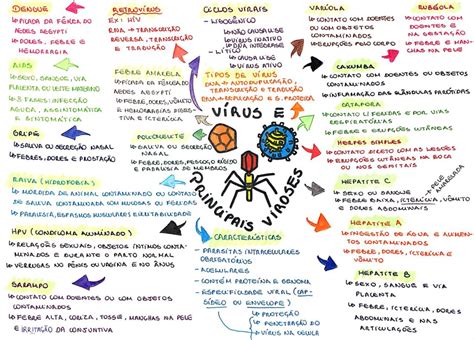 DENGUE
→ PICADA DA FÊMEA DO
AEDES AEGYPTI
→ DORES, FEBRE E
HEMORRAGIA.
RETROVÍRUS
EX: HIV
RNA → TRANSCRIÇÃO
REVERSA, TRANSCRIÇÃO
E TRADUÇÃO
CICLOS VIRAIS
- LISOGÊNICO
↳ NÃO CAUSA LISE
↳ VÍRUS INATIVO
↳ DNA INTEGRASE
- LÍTICO
↳ CAUSA LISE
↳ VÍRUS ATIVO
VARÍOLA
→ CONTATO COM DOENTES
OU COM OBJETOS
CONTAMINADOS
→ ERUPÇÕES PELO CORPO
RUBÉOLA
→ CONTATO COM DOENTES
E NA GESTAÇÃO
→ FEBRE E MAN-
CHAS NA PELE
AIDS
→ SEXO, SANGUE, VIA
PLACENTA OU LEITE MATERNO
→ 3 FASES: INFECÇÃO
AGUDA, ASSINTOMÁTICA
E SINTOMÁTICA
FEBRE AMARELA
→ PICADA DA FÊMEA DO
AEDES AEGYPTI
→ FEBRE, DORES, VÔMITO
E HEMORRAGIAS
E ICTERÍCIA
TIPOS DE VÍRUS
DNA → AUTODUPLICAÇÃO,
TRANSCRIÇÃO E TRADUÇÃO
CAXUMBA
→ CONTATO COM DOENTES OU OBJETOS
CONTAMINADOS
→ INFLAMAÇÃO DAS GLÂNDULAS PARÓTIDAS
GRIPE
→ SALIVA OU SECREÇÃO NASAL
→ FEBRE, DORES E PROSTAÇÃO
POLIOMIELITE
→ SALIVA OU SECREÇÃO
NASAL
→ FEBRE, DORES, PESCOÇO RÍGIDO
E PARALISIA DE MEMBROS
VÍRUS E
PRINCIPAIS VIROSES
CATAPORA
→ CONTATO C/ FERIDAS E POR VIAS
RESPIRATÓRIAS
→ FEBRE E ERUPÇÕES CUTÂNEAS
HERPES SIMPLES
→ CONTATO DIRETO COM AS LESÕES
→ ERUPÇÕES CUTÂNEAS NA BOCA
OU NOS GENITAIS
RAIVA (HIDROFOBIA)
→ MORDIDA DE ANIMAL CONTAMINADO OU CONTATO
DE SALIVA CONTAMINADA COM MUCOSAS OU FERIDAS
→ PARALISIA, ESPASMOS MUSCULARES E IRRITABILIDADE
HEPATITE C
→ SEXO OU SANGUE
→ FEBRE BAIXA, ICTERÍCIA, VÔMITO
E DORES ABDOMINAIS
→ PELE
AMARELADA
HPV (CONDILOMA ACUMINADO)
→ RELAÇÕES SEXUAIS, OBJETOS ÍNTIMOS CONTA-
MINADOS E DURANTE O PARTO NORMAL
→ VERRUGAS NO PÊNIS OU VAGINA E NO ÂNUS
CARACTERÍSTICAS
- PARASITAS INTRACELULARES
OBRIGATÓRIOS
- ACELULARES
- CONTÉM PROTEÍNA E GENOMA
- ESPECIFICIDADE VIRAL (CAP-
SÍDEO OU ENVELOPE)
↳ PROTEÇÃO
↳ PENETRAÇÃO DO
VÍRUS NA CÉLULA
HEPATITE A
→ INGESTÃO DE ÁGUA E ALIMEN-
TOS CONTAMINADOS
→ FEBRE, DORES, ICTERÍCIA E
VÔMITO
SARAMPO
→ CONTATO COM DOENTES OU COM OBJETOS
CONTAMINADOS
→ FEBRE ALTA, CORIZA, TOSSE, MANCHAS NA PELE
E IRRITAÇÃO DA CONJUNTIVA
HEPATITE B
→ SEXO, SANGUE E VIA
PLACENTA
→ FEBRE, ICTERÍCIA, DORES
ABDOMINAIS E NAS
ARTICULAÇÕES